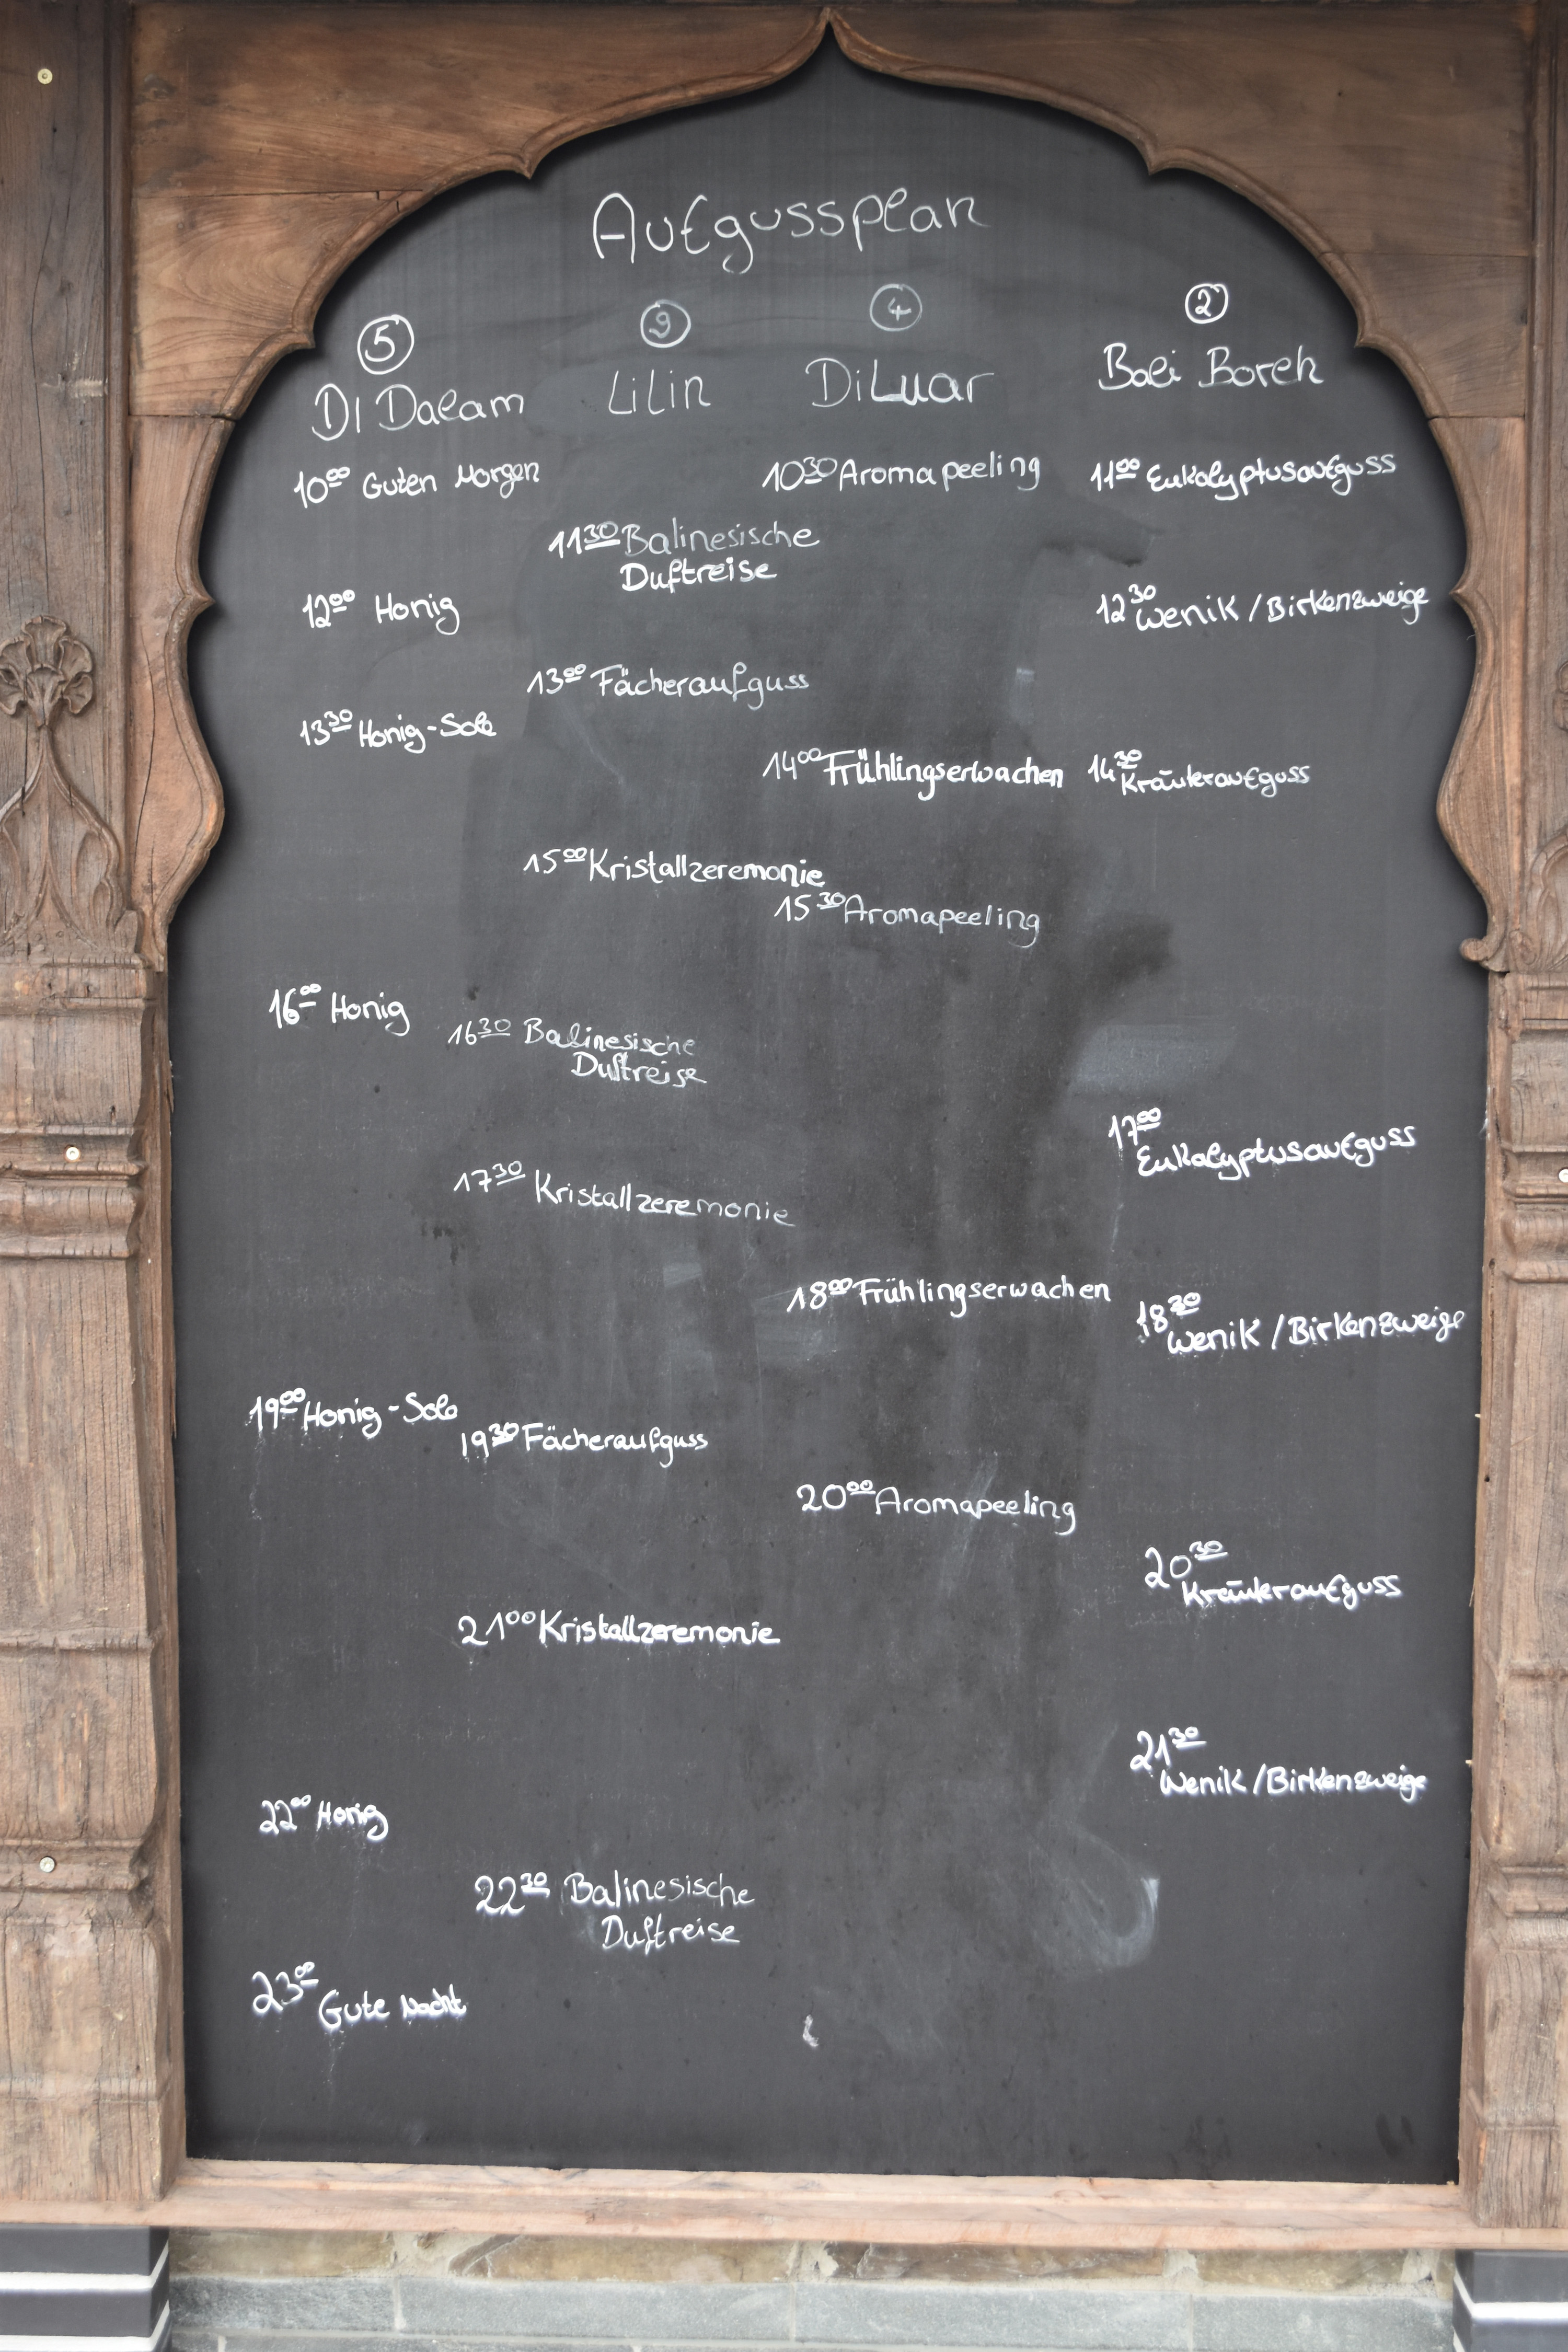 Aufgussplan
5 9 4 2
Di Dalam Lilin DiLuar Bali Boreh
10 00 Guten Morgen 10 30 Aromapeeling 11 00 Eukalyptusaufguss
11 30 Balinesische
Duftreise
12 00 Honig 12 30 Wenik / Birkenzweige
13 00 Fächeraufguss
13 30 Honig-Sole
14 00 Frühlingserwachen 14 30 Kräuteraufguss
15 00 Kristallzeremonie
15 30 Aromapeeling
16 00 Honig
16 30 Balinesische
Duftreise
17 00
Eukalyptusaufguss
17 30 Kristallzeremonie
18 00 Frühlingserwachen
18 30
Wenik / Birkenzweige
19 00 Honig-Sole
19 30 Fächeraufguss
20 00 Aromapeeling
20 30
Kräuteraufguss
21 00 Kristallzeremonie
21 30
Wenik / Birkenzweige
22 00 Honig
22 30 Balinesische
Duftreise
23 00 Gute Nacht